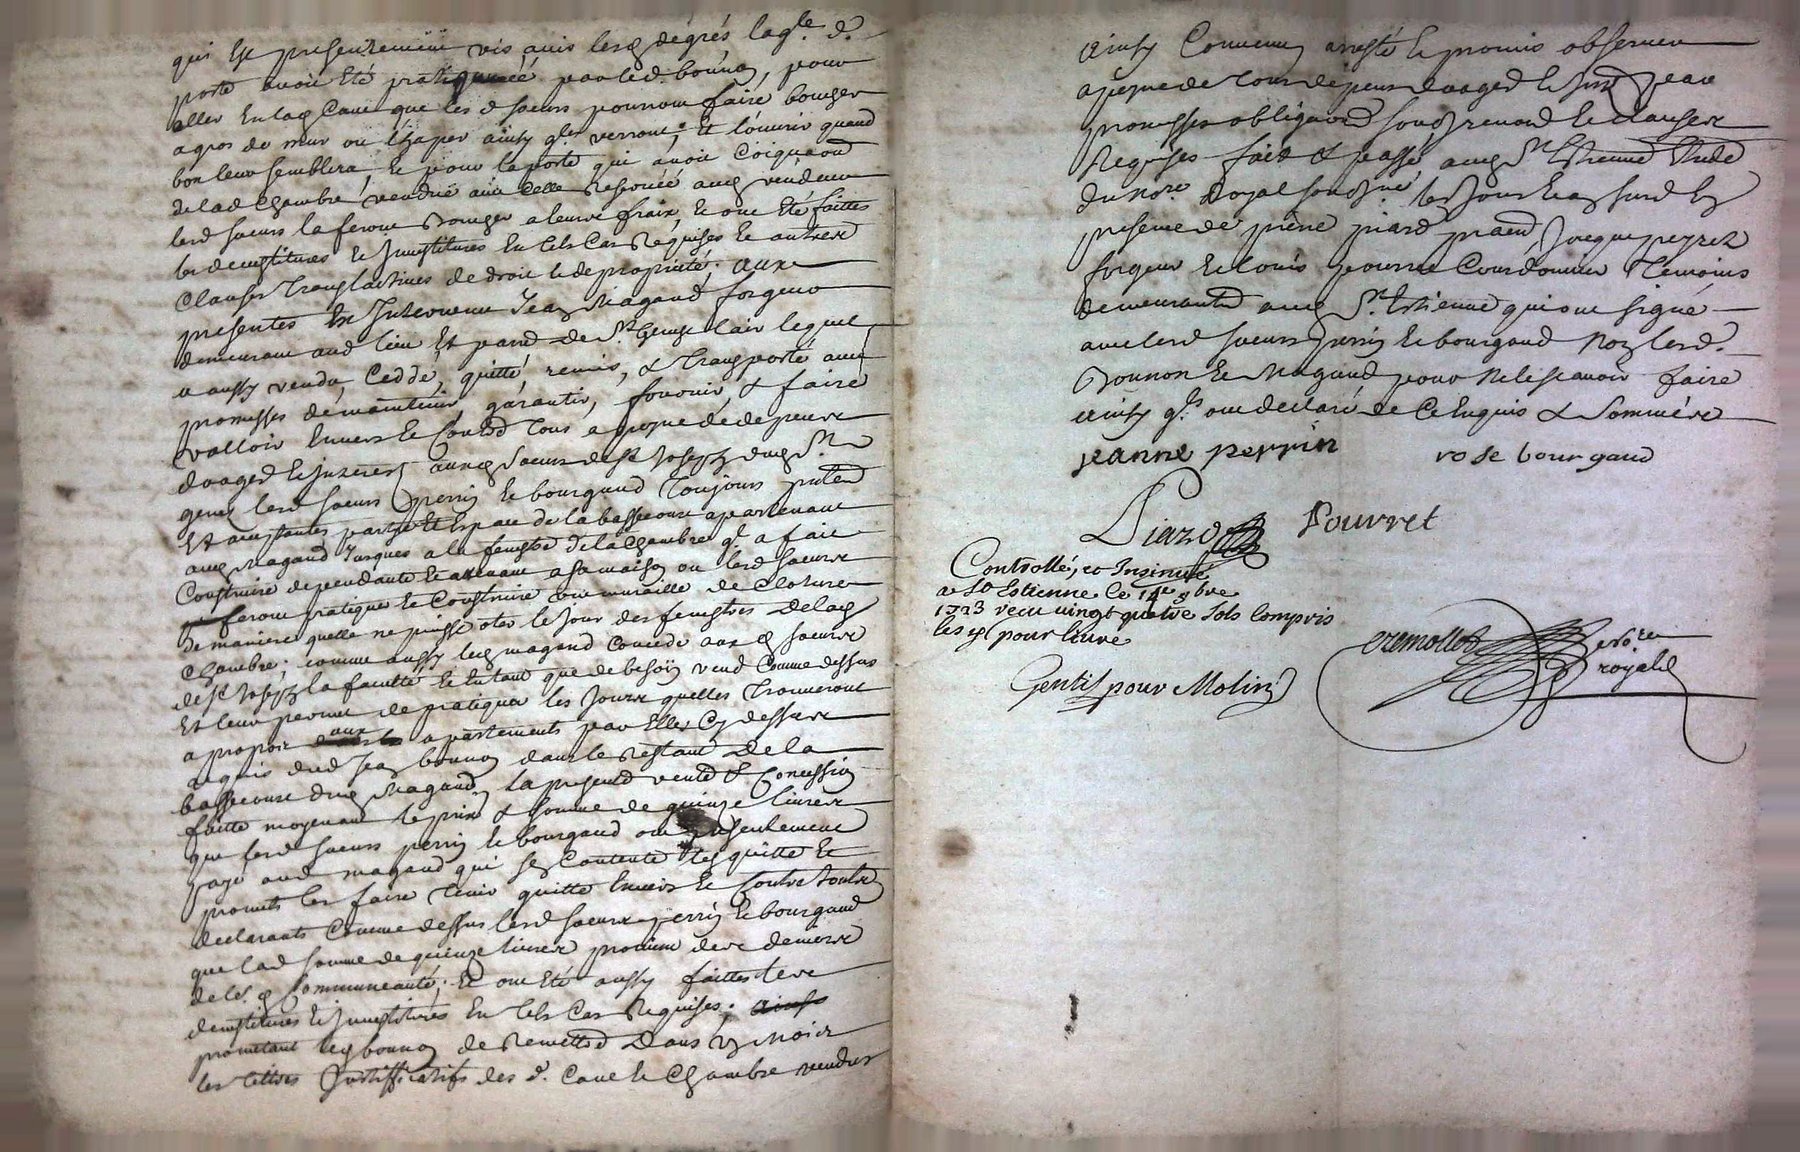 qui est presentement vis avis lesd degrés laq.le d.
porte avoit été pratiquée par led. bounon, pour
aller en lad Cave que les d soeurs pourront faire bouger
a gros de mur ou étaper ainsy q.les verront, et l'ouvrir quand
bon leur semblera, et pour la porte qui avoit
de lad Chambre vendue a celle reservée aud vendeur
lesd soeurs la feront bouger a leurs fraix, et ont été faittes
les demptitures et Inveptitures en tels Cas Requises et autres
Clauses Translatives de droit et de proprieté; aux
presentes est Intervenu Jean Magand forgeur
demeurant aud lieu et parr de St. lequel
a aussy vendu, Ceddé, quitté, remis, & Transporté avec
promesses de maintenir, garantir, fournir, & faire
valloir envers et Contre Tous a peyne de depens
domages et jnterest auxd Soeurs de St Joseph dud St.
genez lesd soeurs perrin et bourgaud Toujours
Et acceptantes partye et espace de la bassecour apartenant
aud Magand Jusques a la fenestre de la chambre q.l a fait
Construire dependante et attenant a sa maison ou lesd soeurs
feront pratiquer et Construire une muraille de Cloture
de maniere quelle ne puisse oter le Jour des fenestres de lad
Chambre; comme aussy led magand Concede aux d soeurs
de St Joseph la faculté et en tant que de besoin vend Comme dessus
Et leur permet de pratiquer les Jours quelles Trouveront
a propos aux apartements par Elles Cy dessus
aquis dud Jean bounon dans le Restant de la
bassecour dud Magand, la presente vente & Concession
faitte moyenant le prix & somme de quinze livres
que lesd soeurs perrin et bourgaud ont presentement
payé aud magand qui sen Contente les quitte et
promet les faire Tenir quitte envers et Contre toutes
declarants Comme dessus lesd soeurs perrin et bourgaud
que lad somme de quinze livres provient des deniers
de led. Communeauté; Et ont été aussy faittes les
demptitures et Inveptitures en tels Cas Requises;
promettant led bounon de Remettre Dans un Mois
les titres Justifficatifs des d. Cave et Chambre vendus
ainsy Convenu arresté et promis observer
a peyne de tous depens domages et jnts
promesses obligaons soubz renons et clauses
Requises fait & passé aud St Estienne Etude
du No.re Royal soussigné les Jour et an susd En
presence de pierre piard praen, Jacque peyret
forgeur et louis pourret Courdonnier Temoins
demeurants aud St. Estienne qui ont signé
avec lesd soeurs perrin et bourgaud Non lesd.
Bounon et Magand pour Ne le scavoir faire
ainsy q.ls ont declaré de Ce Enquis & Sommés
jeanne perrin rose bourgaud
Piard Pourret
Controllé, et Insinué
a St Estienne le 14e 9bre
1723 recu vingt quatre sols Compris
les pour livre
Gentil pour Molin
Cremollet No.re
royal